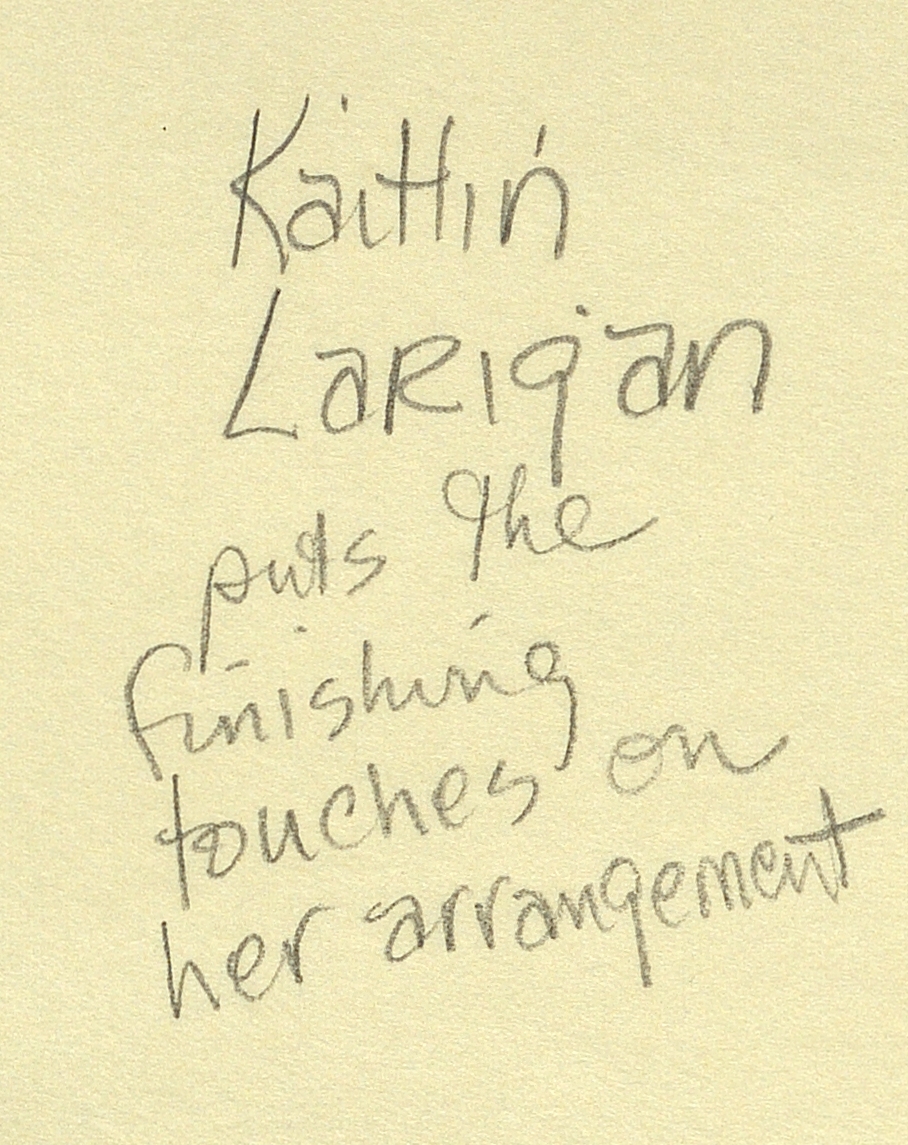 Kaitlin
Larigan
puts the
finishing
touches on
her arrangement